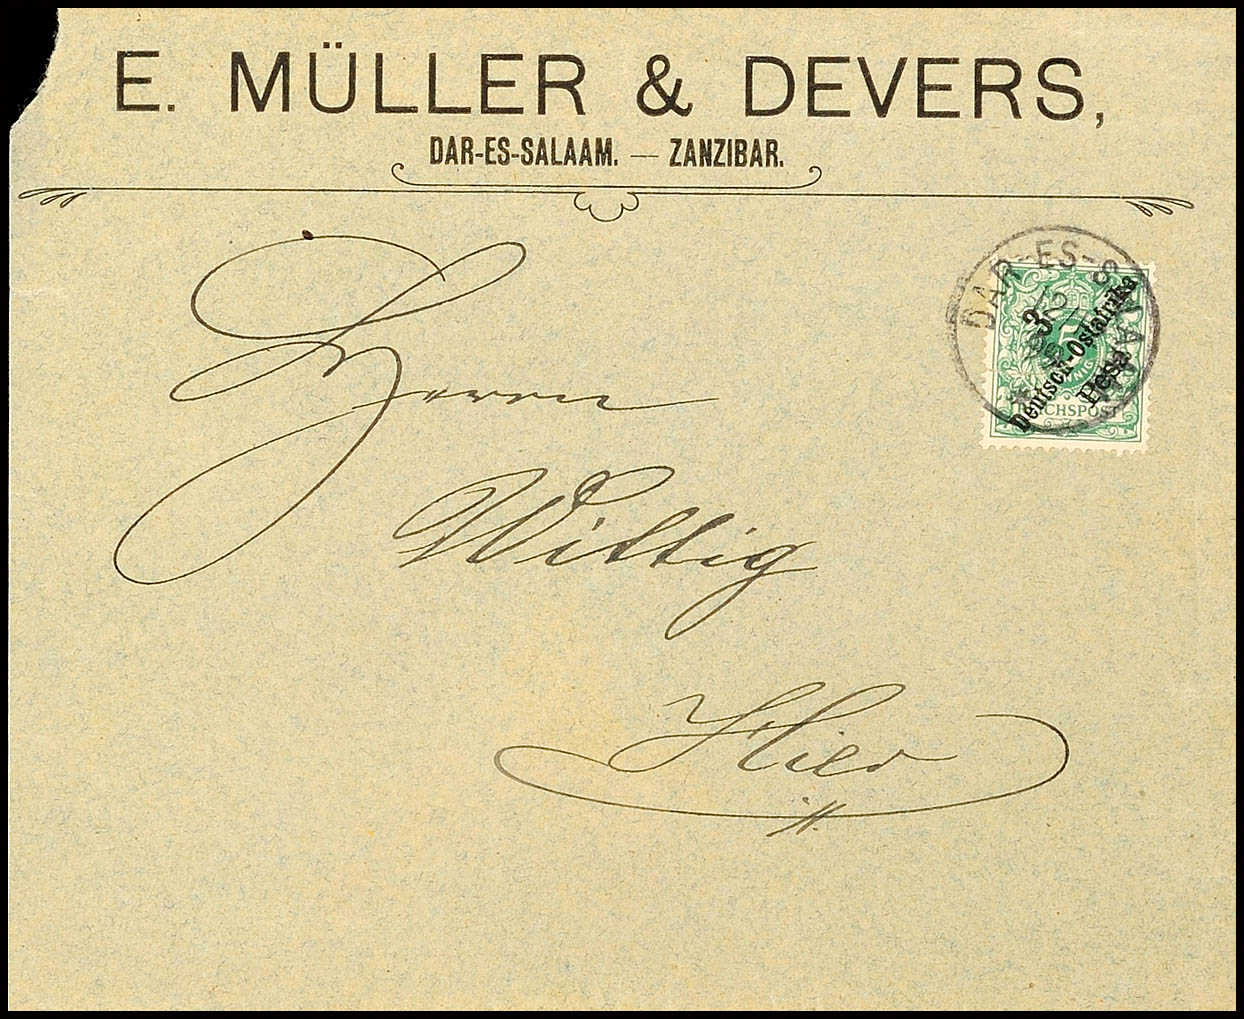 E. MÜLLER & DEVERS,
DAR-ES-SALAAM. — ZANZIBAR.
DAR-ES-SALAAM
3
Deutsch-Ostafrika
Pesa
5
REICHSPOST
Herrn
Wittig
Hier